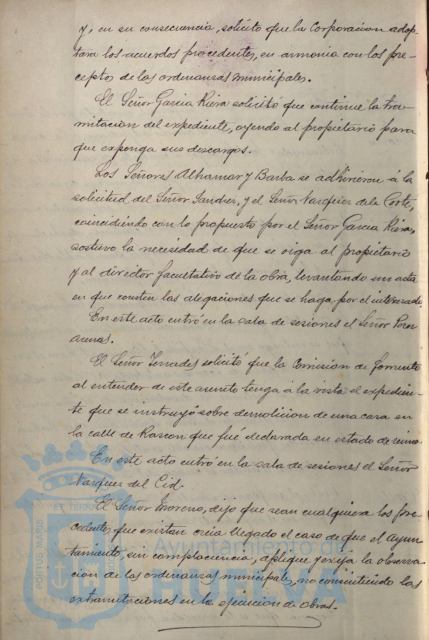 y, en su consecuencia, solicitó que la Corporacion adop-
tara los acuerdos procedentes, en armonia con los pre-
ceptos de las ordenanzas municipales.
El Señor Garcia Riera solicitó que continue la tra-
mitacion del expediente, oyendo al propietario para
que exponga sus descargos.
Los Señores Alhamar y Barba se adhirieron á la
solicitud del Señor Sanchez, y el Señor Vazquez de la Corte,
coincidiendo con lo propuesto por el Señor Garcia Riera,
sostuvo la necesidad de que se oiga al propietario
y al director facultativo de la obra, levantando un acta
en que consten las alegaciones que se haga por el interesado.
En este acto entró en la sala de sesiones el Señor
El Señor solicitó que la Comision de fomento
al entender de este asunto tenga á la vista el expedien-
te que se instruyó sobre demolicion de una casa en
la calle de Rascon que fué declarada en estado de ruina.
En este acto entró en la sala de sesiones el Señor
Vazquez del Cid.
El Señor Moreno, dijo que sean cualquiera los pre-
cedentes que existan creia llegado el caso de que el ayun-
tamiento, sin complacencia, aplique y exija la observa-
cion de las ordenanzas municipales, no consintiendo las
extralimitaciones en la ejecucion de obras.
Ayuntamiento de
HUELVA
PORTUS MARIS
ET TERRAE